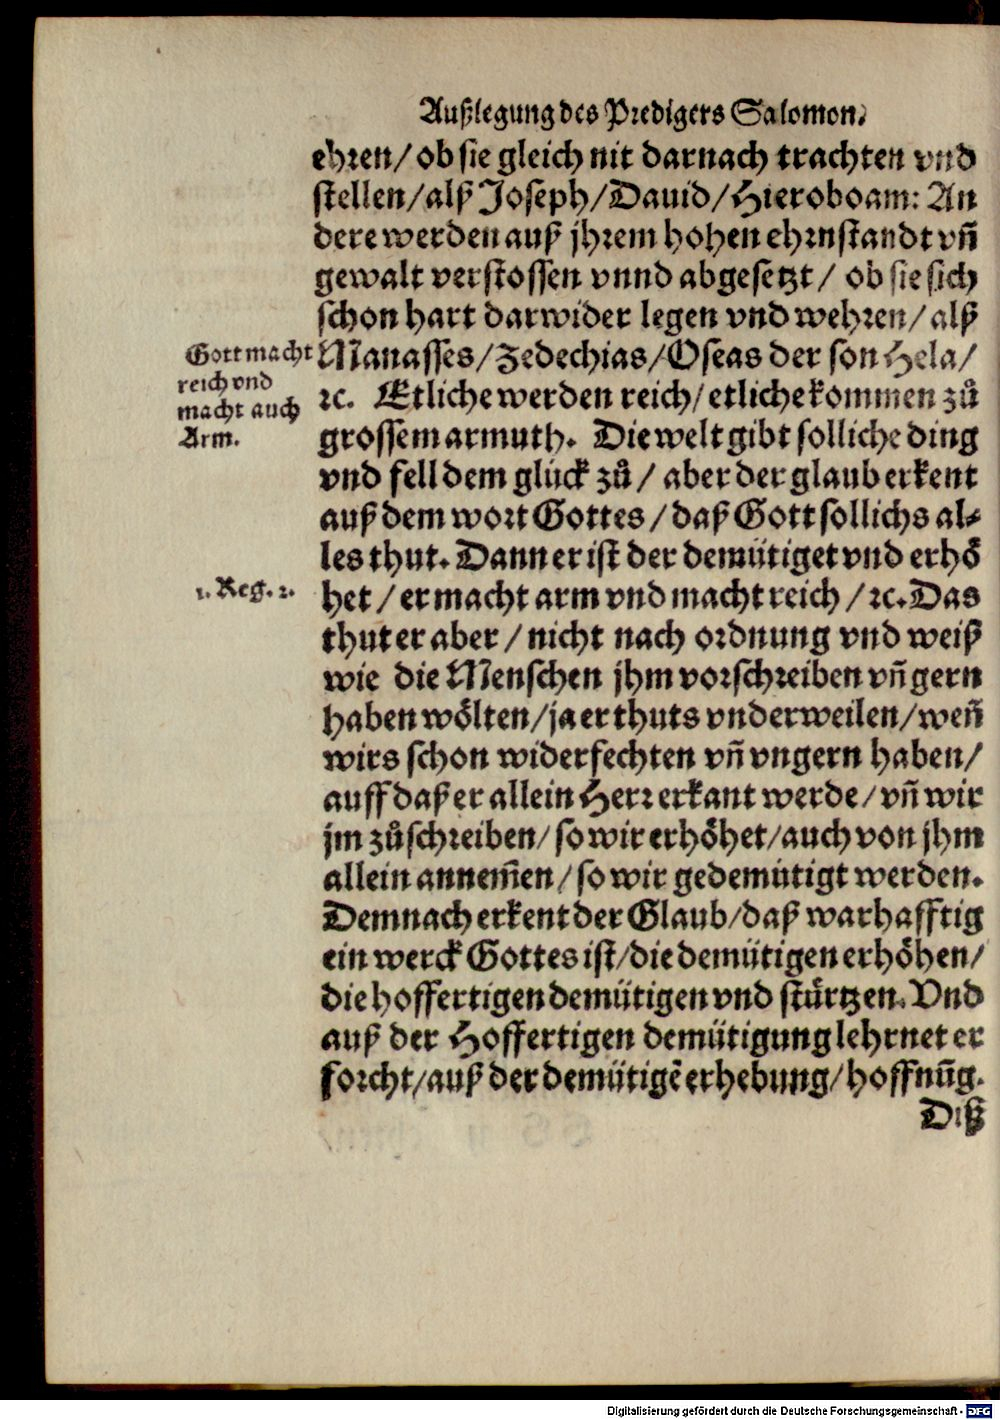 Außlegung des Predigers Salomon.
ehren/ ob sie gleich nit darnach trachten vnd
stellen/ alß Joseph/ Dauid/ Hieroboam: An
dere werden auß jhrem hohen ehrnstandt vñ
gewalt verstossen vnnd abgesetzt/ ob sie sich
schon hart darwider legen vnd wehren/ alß
Gott macht
reich vnd
macht auch
Arm.
Manasses/ Zedechias/ Oseas der son Hela/
ꝛc. Etliche werden reich/ etliche kommen zů
grossem armuth. Die welt gibt solliche ding
vnd fell dem glück zů/ aber der glaub erkent
auß dem wort Gottes/ daß Gott sollichs al⸗
les thut. Dann er ist der demütiget vnd erhö
1. Reg. 2.
het/ er macht arm vnd macht reich/ ꝛc. Das
thut er aber/ nicht nach ordnung vnd weiß
wie die Menschen jhm vorschreiben vñ gern
haben wölten/ ja er thuts vnderweilen/ weñ
wirs schon widerfechten vñ vngern haben/
auff daß er allein Herr erkant werde/ vñ wir
jm zůschreiben/ so wir erhöhet/ auch von jhm
allein annem̃en/ so wir gedemütigt werden.
Demnach erkent der Glaub/ daß warhafftig
ein werck Gottes ist/ die demütigen erhöhen/
die hoffertigen demütigen vnd stürtzen. Vnd
auß der Hoffertigen demütigung lehrnet er
forcht/ auß der demütigẽ erhebung/ hoffnũg.
Diß
Digitalisierung gefördert durch die Deutsche Forschungsgemeinschaft - DFG